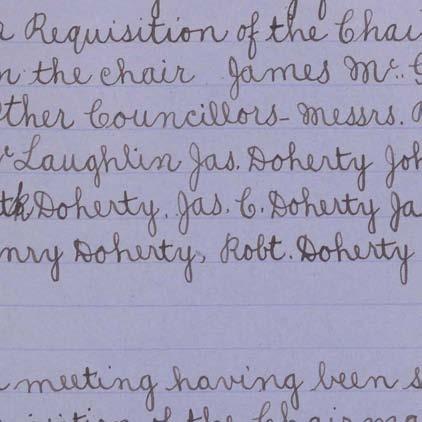 Requisition of the Chai
the chair James Mc.
ther Councillors - Messrs.
Laughlin Jas. Doherty Joh
tk Doherty, Jas. C. Doherty Ja
nry Doherty, Robt. Doherty
meeting having been s
of the Chairma